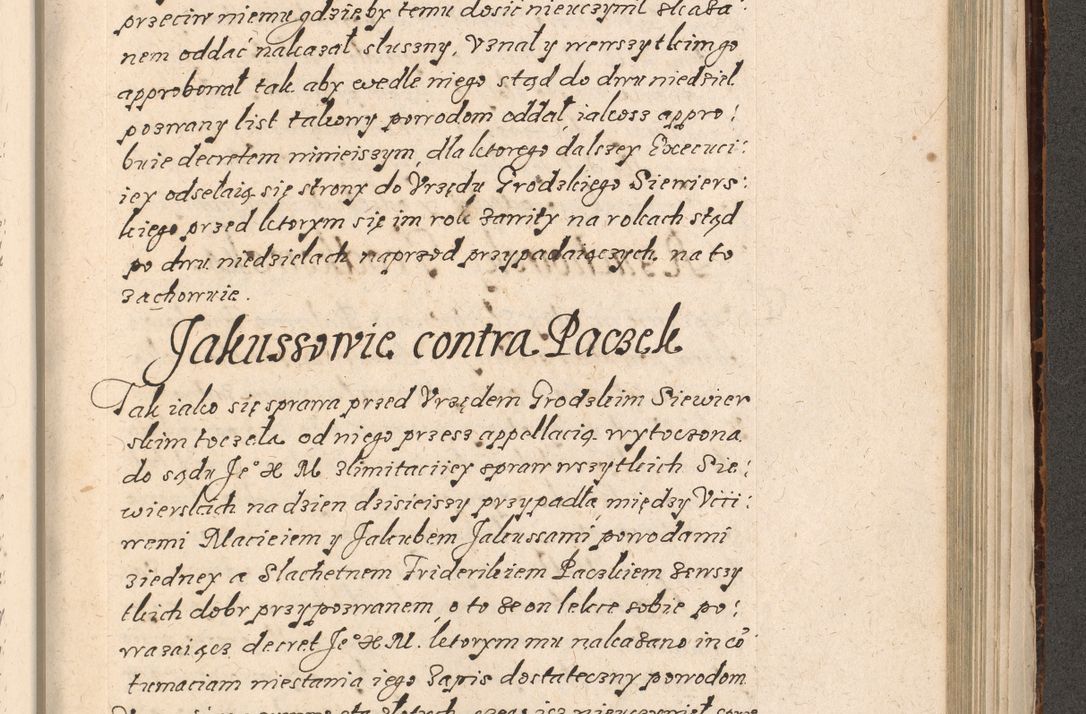 przeciw niemu gdzieby temu dosić nieuczynił skaza:
nem oddać nakazał słuszny, Vznał y wewszytkim go
approbował tak aby wedle niego stąd do dwu niedziel
pozwany list takowy powodom oddał, iakosz appro:
buie decretem ninieiszym, dla ktorego dalszey Execuci:
iey odsełaią się strony do Vrzędu Grodzkiego Siewiers:
kiego przed ktorym się im rok zawity na rokach stąd
po dwu niedzielach naprzod przypadaiączych na to
zachowuie.
Jakussowie contra Paczek
Tak iako się sprawa przed Vrzędem Grodzkim Siewier
skim toczeła od niego przesz appellacią wytoczona
do sądu Je° X M zlimitaciiey spraw wszytkich Sie:
wierskich na dzien dzisieiszy przypadła między Vcci:
wemi Macieiem y Jakubem Jakussami powodami
ziedney a Slachetnem Friderikiem Paczkiem zewszy
tkich dobr przypozwanem, o to że on lekce sobie po:
wazaiącz decret Je° X M. ktorym mu nakazano in co
tumaciam niestania iego Zapis dostateczny powodom